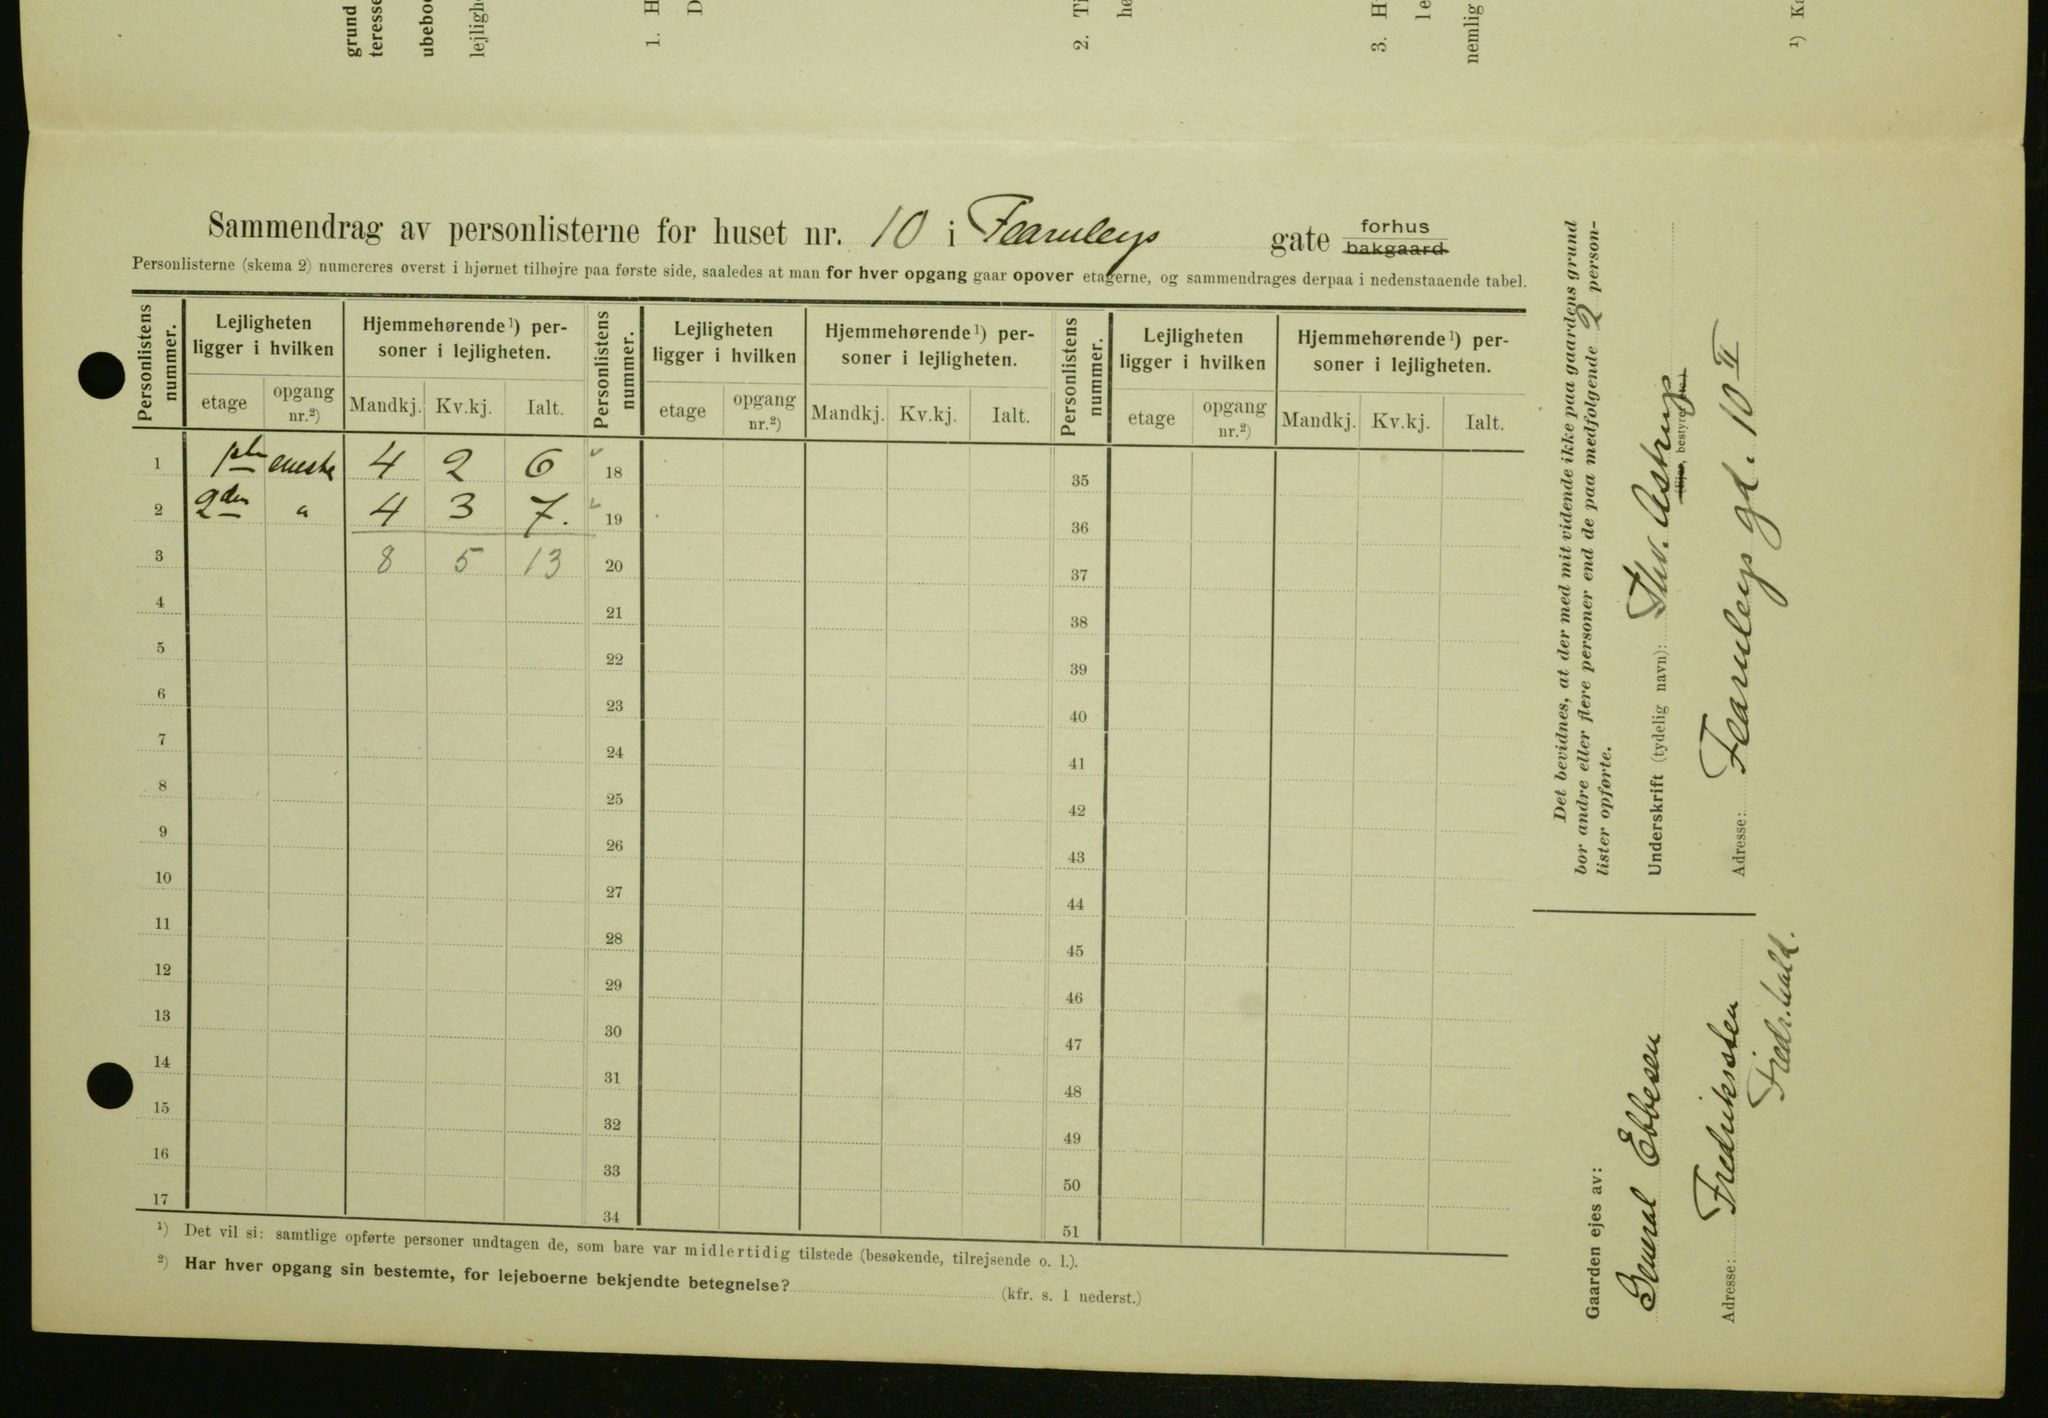 grund
teresse
ubeboe
lejligh
1. H
D
2. Ti
hø
3. H
le
nemlig
¹) Ka
Sammendrag av personlisterne for huset nr. 10 i Fearnleys gate forhus
bakgaard
Personlisterne (skema 2) numereres øverst i hjørnet tilhøjre paa første side, saaledes at man for hver opgang gaar opover etagerne, og sammendrages derpaa i nedenstaaende tabel.
Personlistens nummer. Lejligheten ligger i hvilken Hjemmehørende¹) personer i lejligheten. Personlistens nummer. Lejligheten ligger i hvilken Hjemmehørende¹) personer i lejligheten. Personlistens nummer. Lejligheten ligger i hvilken Hjemmehørende¹) personer i lejligheten.
etage opgang nr.²) Mandkj. Kv.kj. Ialt. etage opgang nr.²) Mandkj. Kv.kj. Ialt. etage opgang nr.²) Mandkj. Kv.kj. Ialt.
1 1ste eneste 4 2 6 18 35
2 2den " 4 3 7. 19 36
3 8 5 13 20 37
4 21 38
5 22 39
6 23 40
7 24 41
8 25 42
9 26 43
10 27 44
11 28 45
12 29 46
13 30 47
14 31 48
15 32 49
16 33 50
17 34 51
¹) Det vil si: samtlige opførte personer undtagen de, som bare var midlertidig tilstede (besøkende, tilrejsende o. l.).
²) Har hver opgang sin bestemte, for lejeboerne bekjendte betegnelse? (kfr. s. 1 nederst.)
Det bevidnes, at der med mit vidende ikke paa gaardens grund
bor andre eller flere personer end de paa medfølgende 2 person-
lister opførte.
Underskrift (tydelig navn): Thv. Astrup
(Ejer, bestyrer etc.)
Adresse: Fearnleys gd. 10 II
Gaarden ejes av:
General Ebbesen
Adresse: Fredriksten
Fredr.hald.